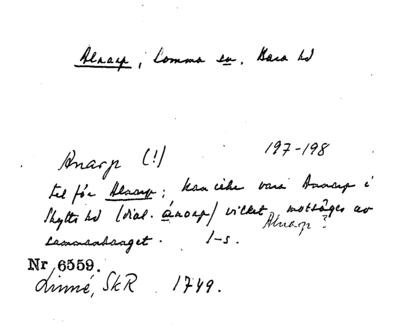 Alnarp, Lomma sn, Bara hd
Anarp (!) 197-198
fel för Alnarp; kan icke vara Annarp i
Skytts hd (dial. ánarp) vilket motsäges av
Alnarp?
sammanhanget. I-s.
Nr 6559.
Linné, SkR 1749.